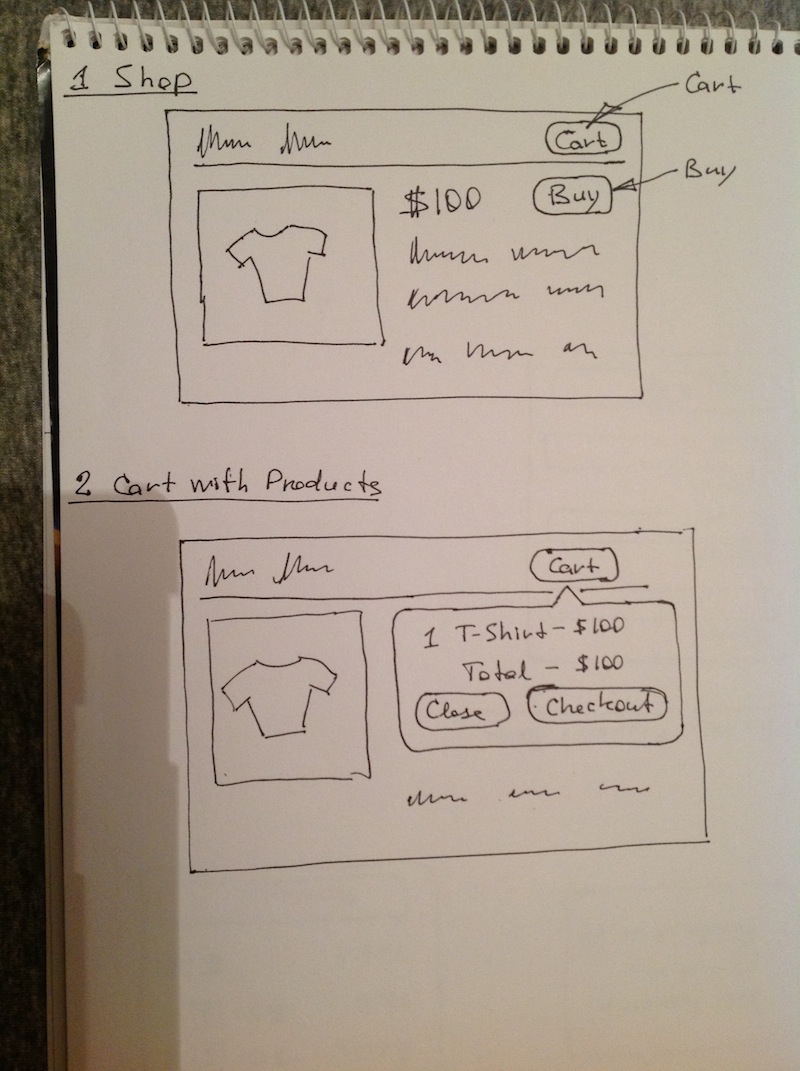 1 Shop
Cart
Cart
$100
Buy
Buy
2 Cart with Products
Cart
1 T-Shirt - $100
Total - $100
Close
Checkout